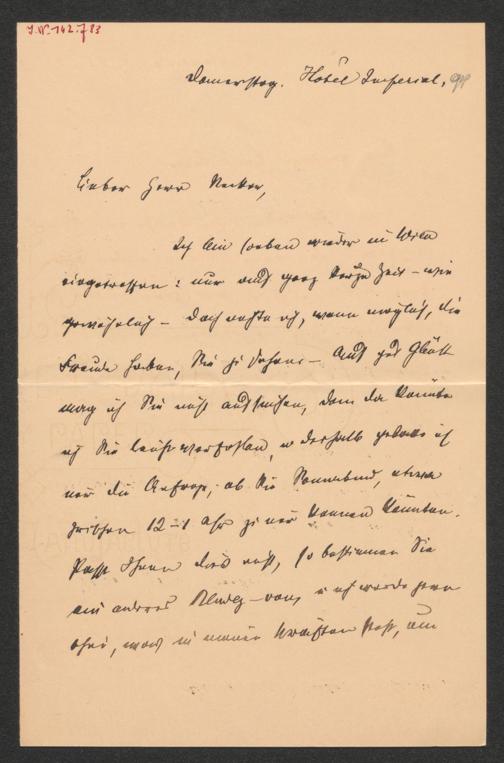 I.N. 142.783
Donnerstag. Hôtel Imperial,
Lieber Herr Necker,
Ich bin soeben wieder in Wien
eingetroffen: nur auf ganz kurze Zeit – wie
gewöhnlich – doch möchte ich, wenn möglich, die
Freude haben, Sie zu sehen – Auf gut Glück
mag ich Sie nicht aufsuchen, denn da könnte
ich Sie leicht verfehlen, u deshalb
mir die Anfrage, ob Sie Sonnabend, etwa
zwischen 12–1 Uhr zu mir kommen könnten.
Passt Ihnen dies nicht, so bestimmen Sie
ein anderes Rendez-vous, u ich werde gern
thun, was in meinen Kräften steht, um